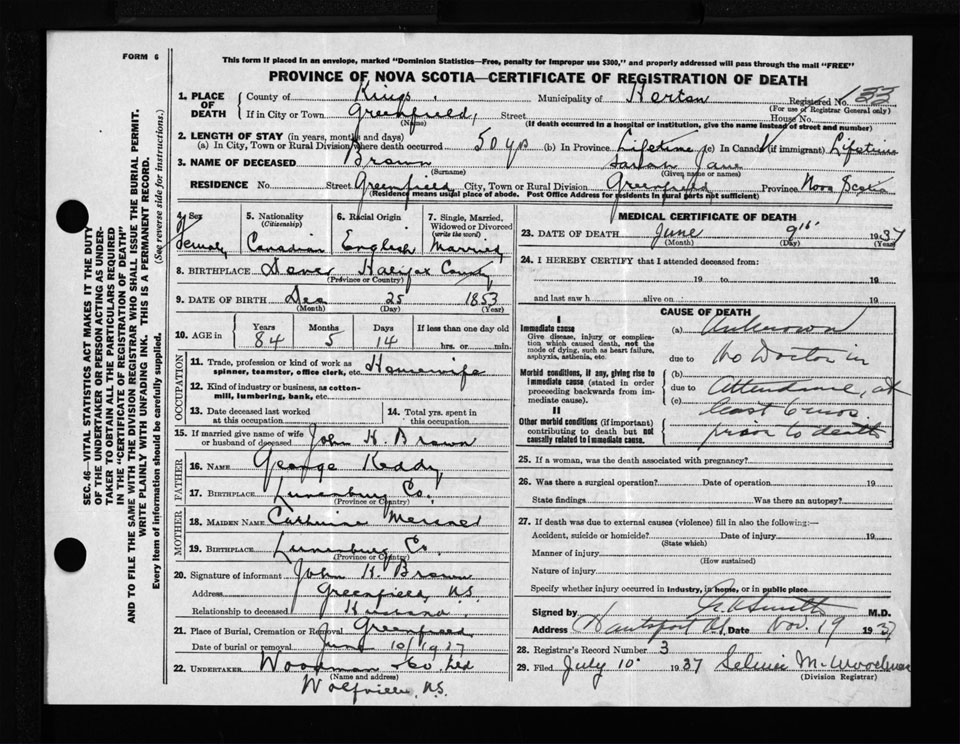 FORM 6
This form if placed in an envelope, marked "Dominion Statistics—Free, penalty for improper use $300," and properly addressed will pass through the mail "FREE"
PROVINCE OF NOVA SCOTIA—CERTIFICATE OF REGISTRATION OF DEATH
SEC. 46—VITAL STATISTICS ACT MAKES IT THE DUTY
OF THE UNDERTAKER OR PERSON ACTING AS UNDER-
TAKER TO OBTAIN ALL THE PARTICULARS REQUIRED
IN THE "CERTIFICATE OF REGISTRATION OF DEATH"
AND TO FILE THE SAME WITH THE DIVISION REGISTRAR WHO SHALL ISSUE THE BURIAL PERMIT.
WRITE PLAINLY WITH UNFADING INK. THIS IS A PERMANENT RECORD.
Every item of information should be carefully supplied. (See reverse side for instructions.)
1. PLACE OF DEATH County of Kings Municipality of Horton Registered No. 133
(For use of Registrar General only)
If in City or Town Greenfield, Street House No.
(Name) (If death occurred in a hospital or institution, give the name instead of street and number)
2. LENGTH OF STAY (in years, months and days)
(a) In City, Town or Rural Division where death occurred 50 yrs (b) In Province Lifetime (c) In Canada (if immigrant) Lifetime
3. NAME OF DECEASED Brown Sarah Jane
(Surname) (Given name or names)
RESIDENCE No. Street Greenfield City, Town or Rural Division Greenfield Province Nova Scotia
(Residence means usual place of abode. Post Office Address for residents in rural parts not sufficient)
4. Sex Female
5. Nationality (Citizenship) Canadian
6. Racial Origin English
7. Single, Married, Widowed or Divorced (write the word) Married
8. BIRTHPLACE Halifax County
(Province or Country)
9. DATE OF BIRTH Dec 25 1853
(Month) (Day) (Year)
10. AGE in Years 84 Months 5 Days 14 If less than one day old
hrs. or min.
OCCUPATION
11. Trade, profession or kind of work as spinner, teamster, office clerk, etc. Housewife
12. Kind of industry or business, as cotton-mill, lumbering, bank, etc.
13. Date deceased last worked at this occupation
14. Total yrs. spent in this occupation
15. If married give name of wife or husband of deceased John H Brown
FATHER
16. NAME George Keddy
17. BIRTHPLACE Lunenburg Co.
(Province or Country)
MOTHER
18. MAIDEN NAME Catherine
19. BIRTHPLACE Lunenburg Co.
(Province or Country)
20. Signature of informant John H. Brown
Address Greenfield, N.S.
Relationship to deceased Husband
21. Place of Burial, Cremation or Removal Greenfield
Date of burial or removal June 10/1937
22. UNDERTAKER Woodman & Co Ltd
(Name and address)
Wolfville, N.S.
MEDICAL CERTIFICATE OF DEATH
23. DATE OF DEATH June 9th 1937
(Month) (Day) (Year)
24. I HEREBY CERTIFY that I attended deceased from:
19 to 19
and last saw h alive on 19
CAUSE OF DEATH
I
Immediate cause
Give disease, injury or complication which caused death, not the mode of dying, such as heart failure, asphyxia, asthenia, etc.
(a) Unknown
due to No Doctor in
Morbid conditions, if any, giving rise to immediate cause (stated in order proceeding backwards from immediate cause).
(b)
due to Attendance, at
(c) least 6 mos.
II
Other morbid conditions (if important) contributing to death but not causally related to immediate cause.
prior to death
25. If a woman, was the death associated with pregnancy?
26. Was there a surgical operation? Date of operation 19
State findings Was there an autopsy?
27. If death was due to external causes (violence) fill in also the following:—
Accident, suicide or homicide? Date of injury 19
(State which)
Manner of injury
(How sustained)
Nature of injury
Specify whether injury occurred in industry, in home, or in public place
Signed by Smith M.D.
Address Hantsport Date Nov. 19 1937
28. Registrar's Record Number 3
29. Filed July 10 1937 M. Woodman
(Division Registrar)